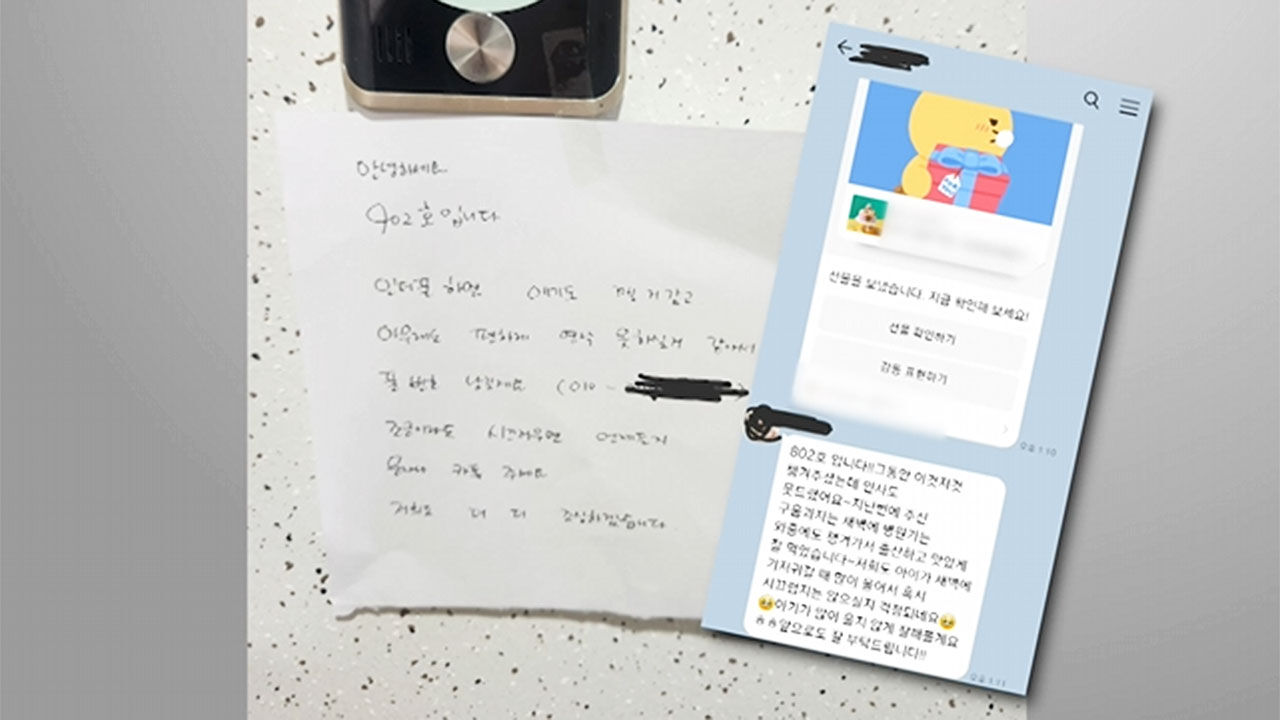 안녕하세요
902호 입니다
인터폰 하면 애기도 깰 거 같고
아무래도 편하게 연락 못하실거 같아서
폰 번호 남길게요 (010-
조금이라도 시끄러우면 언제든지
문자나 카톡 주세요
저희도 더 더 조심하겠습니다
선물을 보냈습니다. 지금 확인해 보세요!
선물 확인하기
감동 표현하기
오후 1:10
802호 입니다!!그동안 이것저것
챙겨주셨는데 인사도
못드렸어요~지난번에 주신
구움과자는 새벽에 병원가는
와중에도 챙겨가서 출산하고 맛있게
잘 먹었습니다~저희도 아이가 새벽에
기저귀갈 때 많이 울어서 혹시
시끄럽지는 않으실지 걱정되네요🥹
🥹아기가 많이 울지 않게 잘해볼게요
ㅎㅎ앞으로도 잘 부탁드립니다!!
오후 1:11